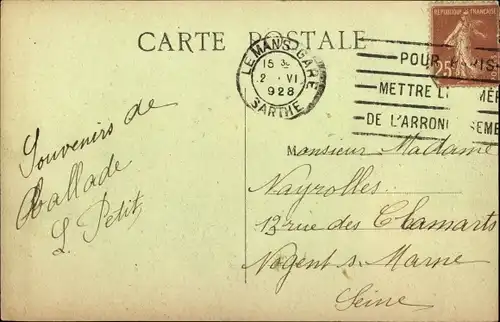 CARTE POSTALE
REPUBLIQUE FRANCAISE
25
LE MANS GARE
15
2 . VI
928
SARTHE
POUR
METTRE
DE L'ARRON
Souvenirs de
Ballade
L. Petit
Monsieur Madame
Nayrolles
12 rue des Clamarts
Nogent s. Marne
Seine